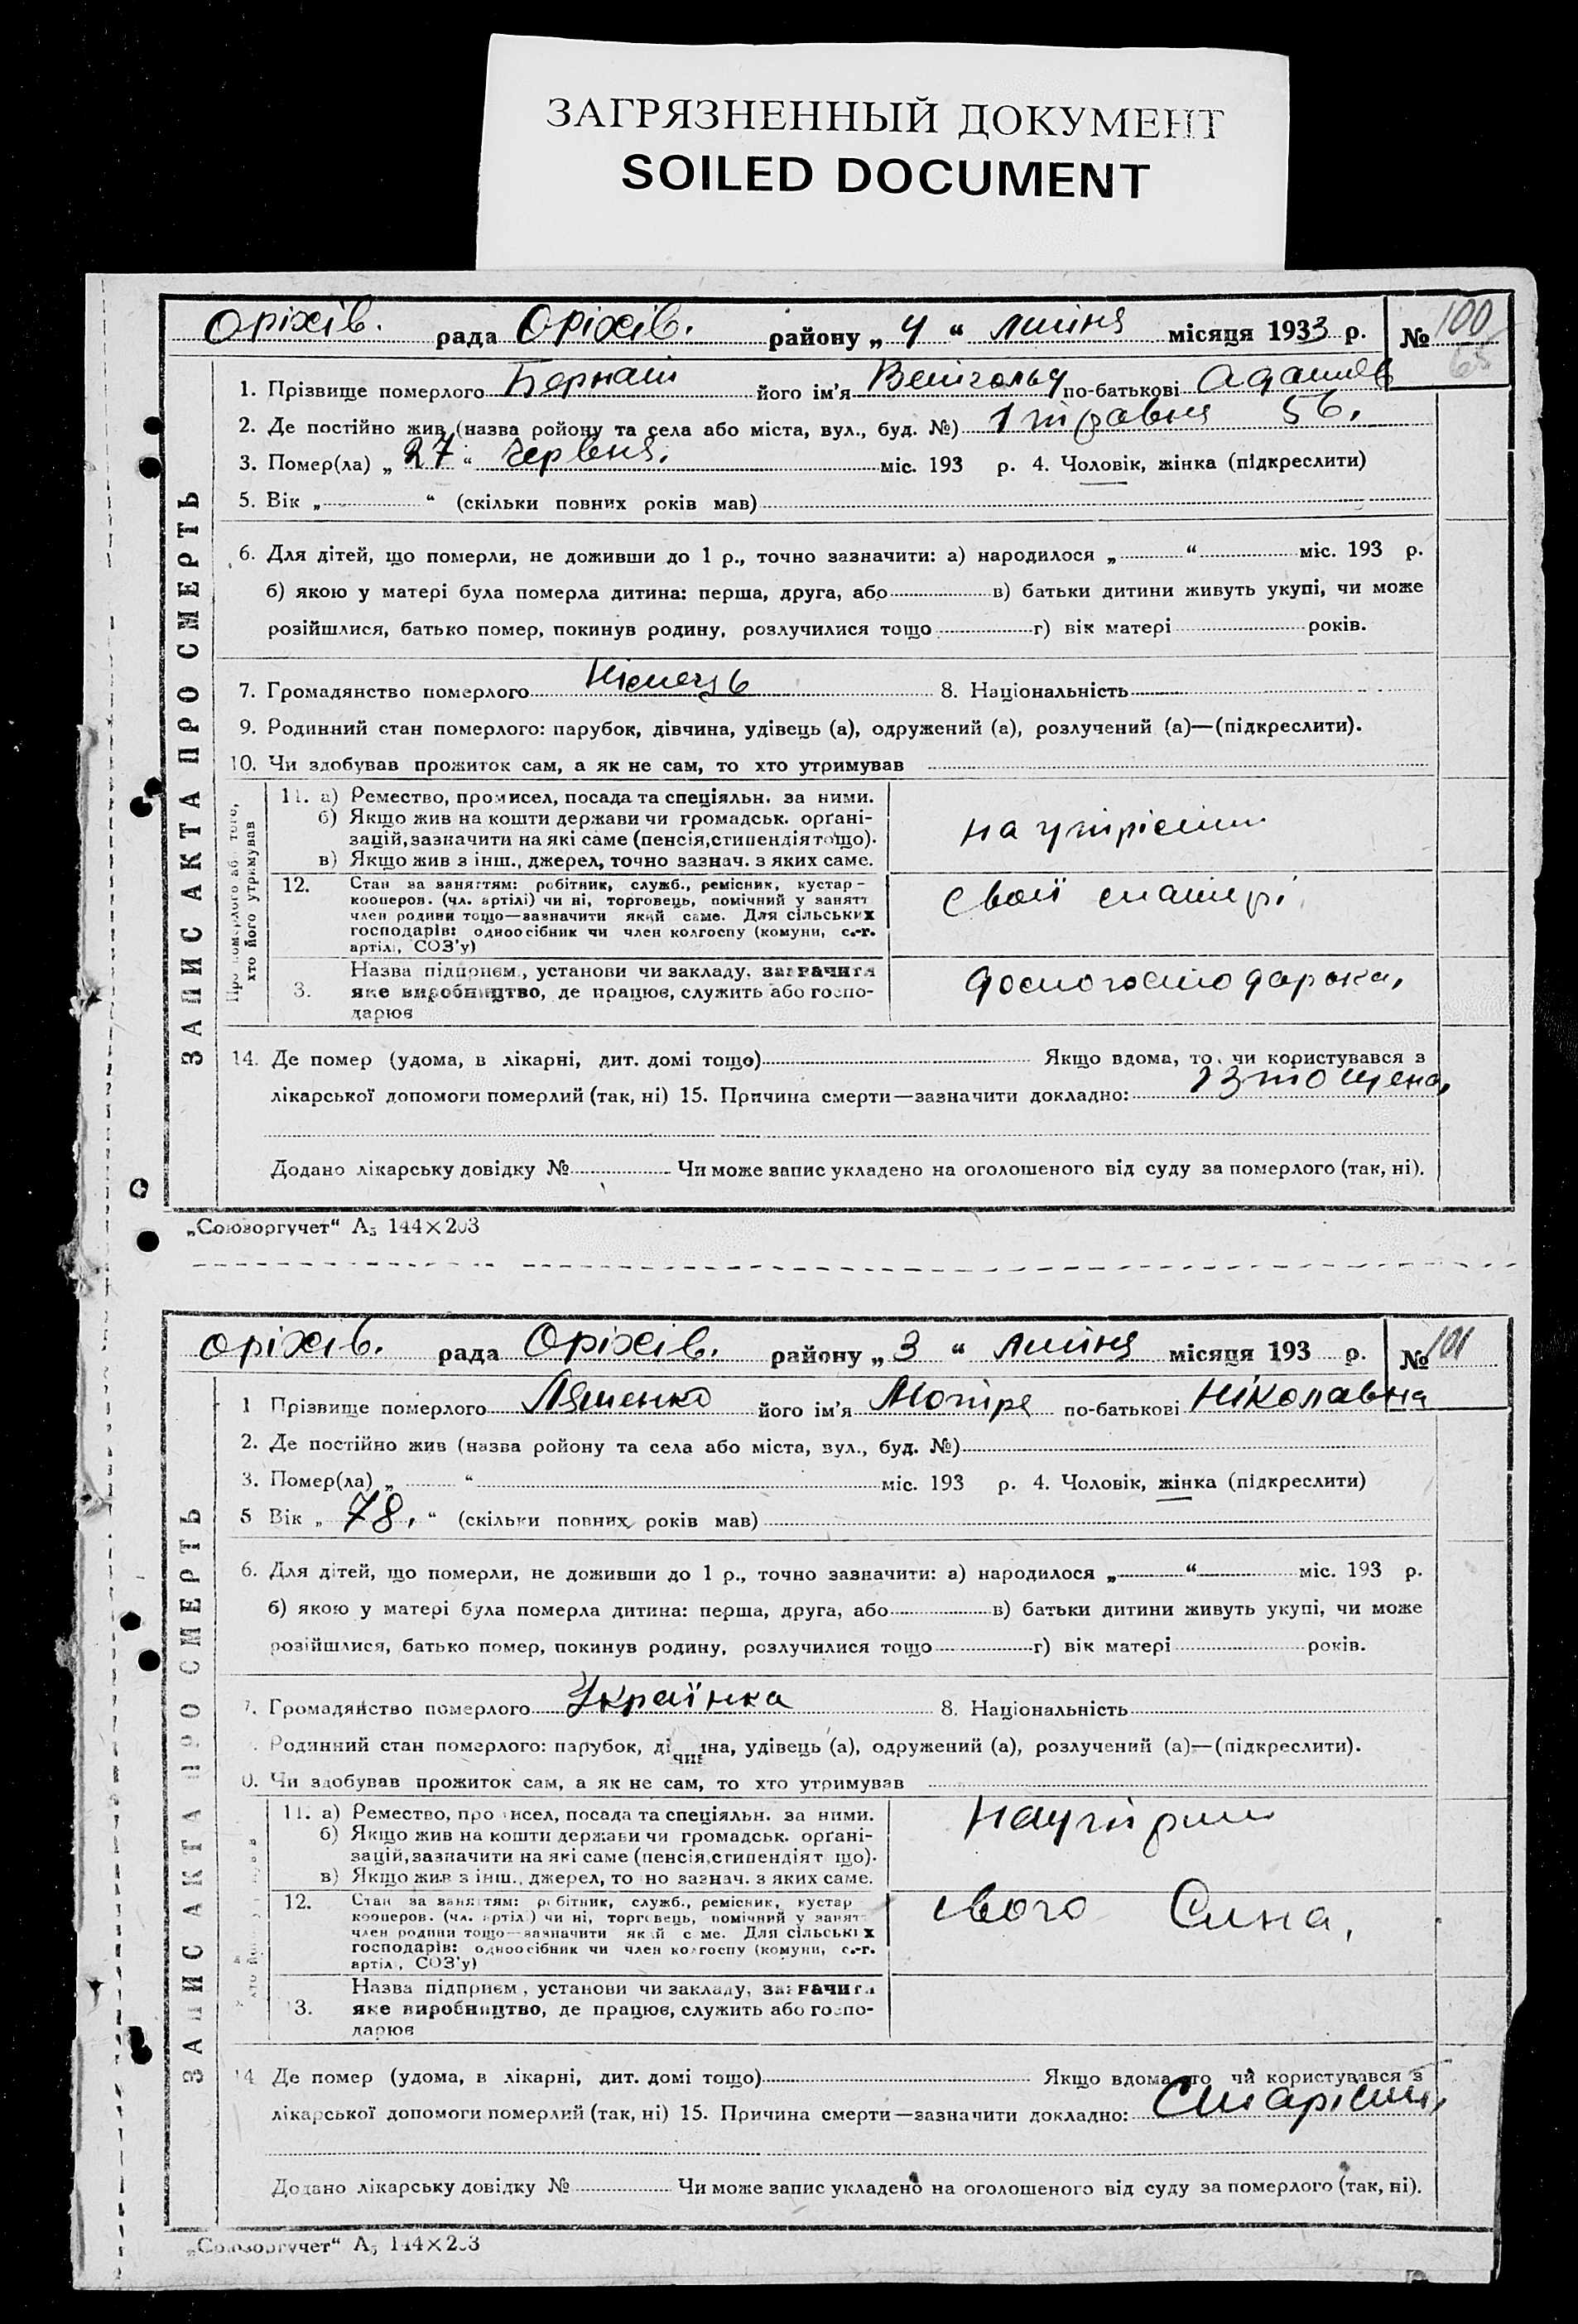 ЗАГРЯЗНЕННЫЙ ДОКУМЕНТ
SOILED DOCUMENT
Оріхів. рада Оріхів. району „ 4 “ липня місяця 1933 р. № 100
65
1. Прізвище померлого його ім'я по-батькові
2. Де постійно жив (назва ройону та села або міста, вул., буд. №) 1 травня 56.
3. Помер(ла) „ 27 “ червня. міс. 193 р. 4. Чоловік, жінка (підкреслити)
5. Вік „ “ (скільки повних років мав)
6. Для дітей, що померли, не доживши до 1 р., точно зазначити: а) народилося „ “ міс. 193 р.
б) якою у матері була померла дитина: перша, друга, або в) батьки дитини живуть укупі, чи може
розійшлися, батько помер, покинув родину, розлучилися тощо г) вік матері років.
7. Громадянство померлого Німець 8. Національність
9. Родинний стан померлого: парубок, дівчина, удівець (а), одружений (а), розлучений (а)—(підкреслити).
10. Чи здобував прожиток сам, а як не сам, то хто утримував
11. а) Ремество, промисел, посада та спеціяльн. за ними.
б) Якщо жив на кошти держави чи громадськ. орґані-
зацій, зазначити на які саме (пенсія, стипендія тощо).
в) Якщо жив з інш., джерел, точно зазнач. з яких саме.
на утрієнии
12. Стан за заняттям: робітник, служб., ремісник, кустар-
кооперов. (чл. артілі) чи ні, торговець, помічний у занятт
член родини тощо—зазначити який саме. Для сільських
господарів: одноосібник чи член колгоспу (комуни, с.-г.
артілі, СОЗ'у)
своїї матері
Назва підприєм., установи чи закладу, зазначити
3. яке виробництво, де працює, служить або госпо-
дарює
домогосподарока,
Про померлого або того,
хто його утримував
ЗАПИС АКТА ПРО СМЕРТЬ
14. Де помер (удома, в лікарні, дит. домі тощо) Якщо вдома, то, чи користувався з
лікарської допомоги померлий (так, ні) 15. Причина смерти—зазначити докладно: ізтощена,
Додано лікарську довідку № Чи може запис укладено на оголошеного від суду за померлого (так, ні).
„Союзоргучет“ А5 144×203
Оріхів. рада Оріхів. району „ 3 “ липня місяця 193 р. № 101
1 Прізвище померлого Ляшенко його ім'я Мотря по-батькові Ніколавна
2. Де постійно жив (назва ройону та села або міста, вул., буд. №)
3. Помер(ла) „ “ міс. 193 р. 4. Чоловік, жінка (підкреслити)
5 Вік „ 78. “ (скільки повних років мав)
6. Для дітей, що померли, не доживши до 1 р., точно зазначити: а) народилося „ “ міс. 193 р.
б) якою у матері була померла дитина: перша, друга, або в) батьки дитини живуть укупі, чи може
розійшлися, батько помер, покинув родину, розлучилися тощо г) вік матері років.
7. Громадянство померлого Українка 8. Національність
Родинний стан померлого: парубок, дівчина, удівець (а), одружений (а), розлучений (а)—(підкреслити).
0. Чи здобував прожиток сам, а як не сам, то хто утримував
11. а) Ремество, про исел, посада та спеціяльн. за ними.
б) Якщо жив на кошти держави чи громадськ. орґані-
зацій, зазначити на які саме (пенсія, стипендія т що).
в) Якщо жив з інш., джерел, то но зазнач. з яких саме.
12. Стан за заняттям: робітник, служб., ремісник, кустар
кооперов. (чл. артілі) чи ні, торговець, помічний у занят
член родини тощо—зазначити який с ме. Для сільських
господарів: одноосібник чи член колгоспу (комуни, с.-г.
артілі, СОЗ'у)
свого Сина,
Назва підприєм, установи чи закладу, зазначити
13. яке виробництво, де працює, служить або госпо-
дарює
ЗАПИС АКТА ПРО СМЕРТЬ
14 Де помер (удома, в лікарні, дит. домі тощо) Якщо вдома, то чи користувався з
лікарської допомоги померлий (так, ні) 15. Причина смерти—зазначити докладно:
Додано лікарську довідку № Чи може запис укладено на оголошеного від суду за померлого (так, ні).
„Союзоргучет“ А5 144×203